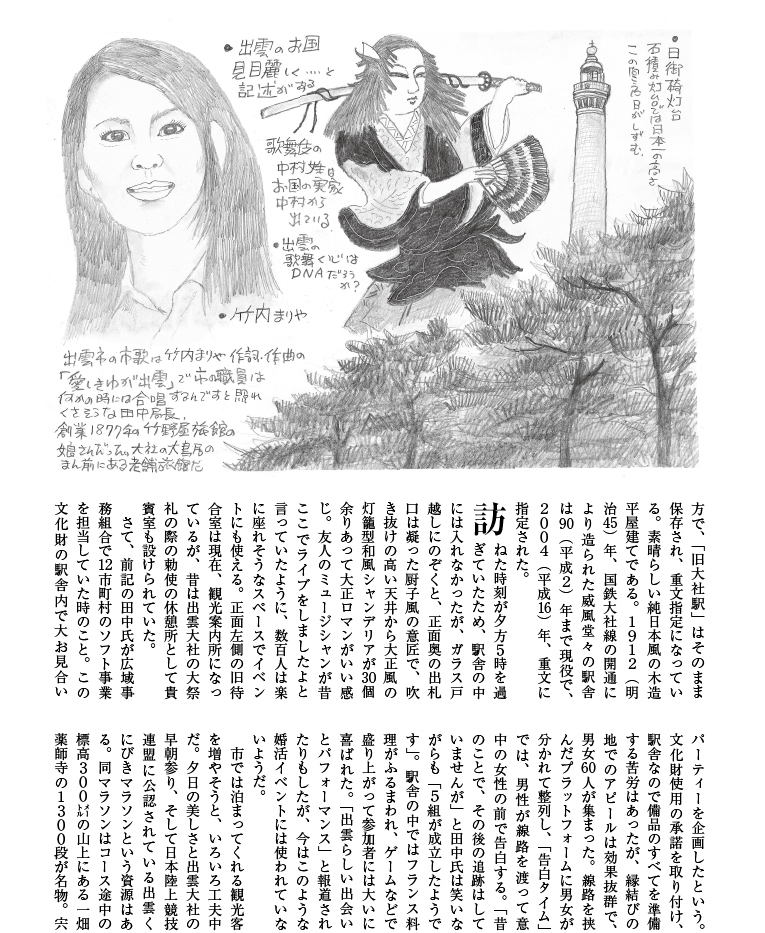 ・出雲のお国
見目麗しく‥‥と
記述がある
歌舞伎の
中村姓は
お国の実家
中村から
出ている
・出雲の
歌舞く心は
DNAだろう
か？
・日御碕灯台
石積み灯台では日本一の高さ
・竹内まりや
出雲市の市歌は竹内まりや作詞・作曲の
「愛しきわが出雲」で市の職員は
何かの時には合唱するんですと照れ
くさそうな田中局長。
創業1877年の竹野屋旅館の
娘さんだった。大社の大鳥居の
まん前にある老舗旅館だ
方で、「旧大社駅」はそのまま
保存され、重文指定になってい
る。素晴らしい純日本風の木造
平屋建てである。1912（明
治45）年、国鉄大社線の開通に
より造られた威風堂々の駅舎
は90（平成2）年まで現役で、
2004（平成16）年、重文に
指定された。
訪ねた時刻が夕方5時を過
ぎていたため、駅舎の中
には入れなかったが、ガラス戸
越しにのぞくと、正面奥の出札
口は凝った厨子風の意匠で、吹
き抜けの高い天井から大正風の
灯籠型和風シャンデリアが30個
余りあって大正ロマンがいい感
じ。友人のミュージシャンが昔
ここでライブをしましたよと
言っていたように、数百人は楽
に座れそうなスペースでイベン
トにも使える。正面左側の旧待
合室は現在、観光案内所になっ
ているが、昔は出雲大社の大祭
礼の際の勅使の休憩所として貴
賓室も設けられていた。
さて、前記の田中氏が広域事
務組合で12市町村のソフト事業
を担当していた時のこと。この
文化財の駅舎内で大お見合い
パーティーを企画したという。
文化財使用の承諾を取り付け、
駅舎なので備品のすべてを準備
する苦労はあったが、縁結びの
地でのアピールは効果抜群で、
男女60人が集まった。線路を挟
んだプラットフォームに男女が
分かれて整列し、「告白タイム」
では、男性が線路を渡って意
中の女性の前で告白する。「昔
のことで、その後の追跡はして
いませんが」と田中氏は笑いな
がらも「5組が成立したようで
す」。駅舎の中ではフランス料
理がふるまわれ、ゲームなどで
盛り上がって参加者には大いに
喜ばれた。「出雲らしい出会い
とパフォーマンス」と報道され
たりもしたが、今はこのような
婚活イベントには使われていな
いようだ。
市では泊まってくれる観光客
を増やそうと、いろいろ工夫中
だ。夕日の美しさと出雲大社の
早朝参り、そして日本陸上競技
連盟に公認されている出雲く
にびきマラソンという資源はあ
る。同マラソンはコース途中の
標高300㍍の山上にある一畑
薬師寺の1300段が名物。宍